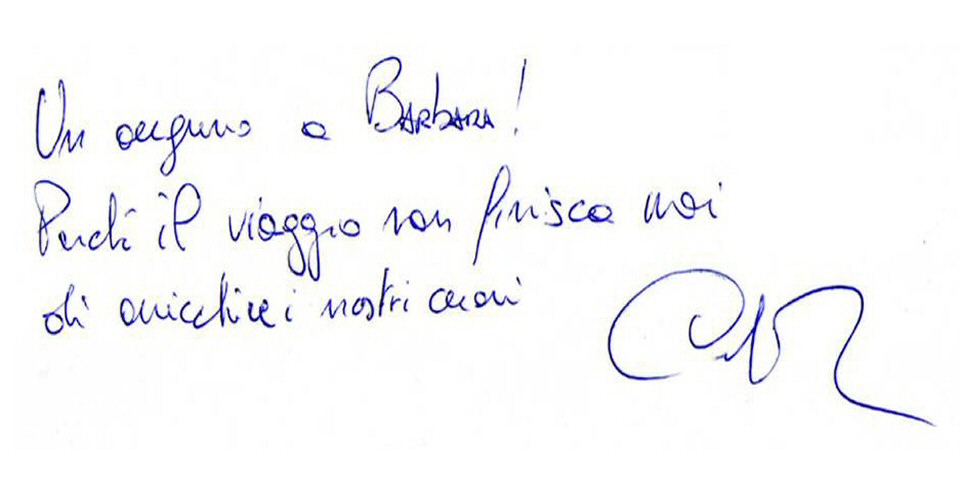 Un augurio a Barbara!
Perché il viaggio non finisca mai
di arricchire i nostri cuori